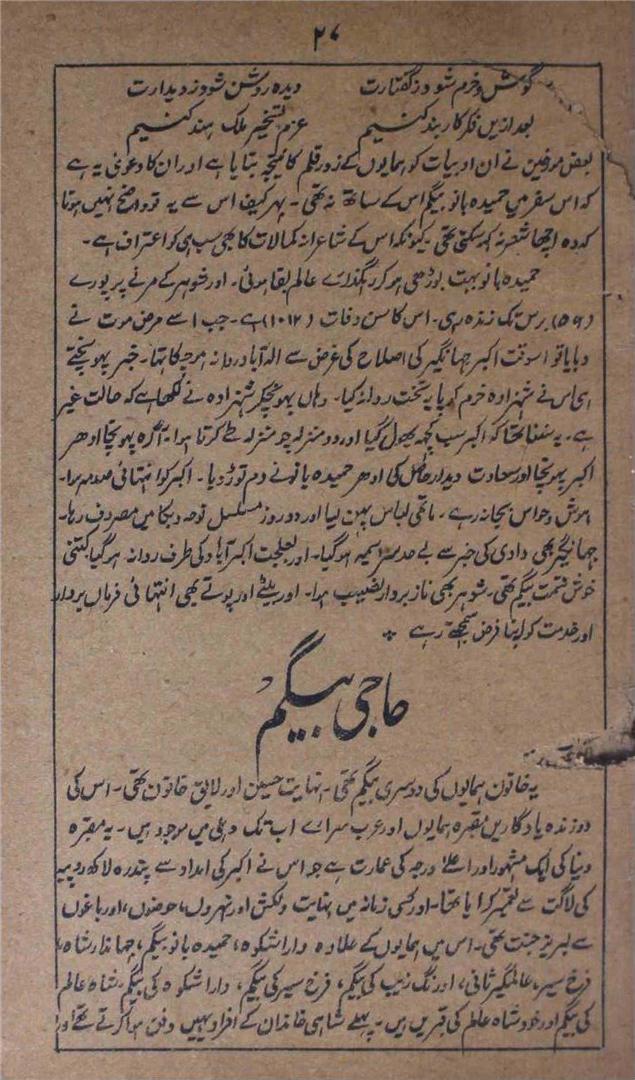 ۲۷
گوش خرم شود ز گفتارت دیدہ روشن شود ز دیدارت
بعد ازیں فکر کار بند کنیم عزم تسخیر ملک ہند کنیم
بعض مورخین نے ان ادبیات کو ہمایوں کے زور قلم کا نتیجہ بتایا ہے اور ان کا دعویٰ یہ ہے
کہ اس سفر میں حمیدہ بانو بیگم اس کے ساتھ نہ تھی۔ بہر کیف اس سے یہ تو واضح نہیں ہوتا
کہ وہ اچھا شعر نہ کہہ سکتی تھی۔ کیونکہ اس کے شاعرانہ کمالات کا بھی سب ہی کو اعتراف ہے۔
حمیدہ بانو بہت بوڑھی ہو کر رہگذائے عالم بقا ہوئی۔ اور خوہر کے مرنے پر پورے
(۵۶) برس تک زندہ رہی۔ اس کا سن وفات (۱۰۱۲) ہے۔ جب اسے مرض موت نے
دبایا تو اسوقت اکبر جہانگیر کی اصلاح کی غرض سے الہ آباد روانہ ہو چکا تھا۔ خبر پہونچتے
ہی اس نے شہزادہ خرم کو پایہ تخت روانہ کیا۔ وہاں پہونچکر شہزادہ نے لکھا ہے کہ حالت غیر
ہے۔ یہ سننا تھا کہ اکبر سب کچھ بھول گیا اور دو منزلہ چو منزلہ طے کرتا ہوا۔ آگرہ پہونچا ادھر
اکبر پہونچا اور سعادت دیدار حاصل کی ادھر حمیدہ بانو نے دم توڑ دیا۔ اکبر کو انتہائی صدمہ ہوا۔
ہوش و حواس بجا نہ رہے۔ ماتمی لباس پہن لیا اور دو روز مسلسل نوحہ و بکا میں مصروف رہا۔
جہانگیر بھی دادی کی خبر سے بے حد سراسیمہ ہو گیا۔ اور بعجلت اکبر آباد کی طرف روانہ ہو گیا کتنی
خوش قسمت بیگم تھی۔ شوہر بھی ناز بردار نصیب ہوا۔ اور بیٹے اور پوتے بھی انتہائی فرماں بردار
اور خدمت کو اپنا فرض سمجھتے رہے
حاجی بیگم
یہ خاتون ہمایوں کی دوسری بیگم تھی۔ نہایت حسین اور لایق خاتون تھی۔ اس کی
دو زندہ یادگاریں مقبرہ ہمایوں اور عرب سرائے اب تک دہلی میں موجود ہیں۔ یہ مقبرہ
دنیا کی ایک مشہور اور اعلےٰ درجہ کی عمارت ہے جو اس نے اکبر کی امداد سے پندرہ لاکھ روپیہ
کی لاگت سے تعمیر کرایا تھا۔ اور کسی زمانہ میں نہایت دلکش اور نہروں، حوضوں، اور باغوں
سے لبریز جنت تھی۔ اس میں ہمایوں کے علاوہ داراشکوہ، حمیدہ بانو بیگم، جہاندار شاہ،
فرخ سیر، عالمگیر ثانی، اورنگ زیب کی بیگم، فرخ سیر کی بیگم، داراشکوہ کی بیگم، شاہ عالم
کی بیگم اور خود شاہ عالم کی قبریں ہیں۔ پہلے شاہی خاندان کے افراد یہیں دفن ہوا کرتے تھے اور